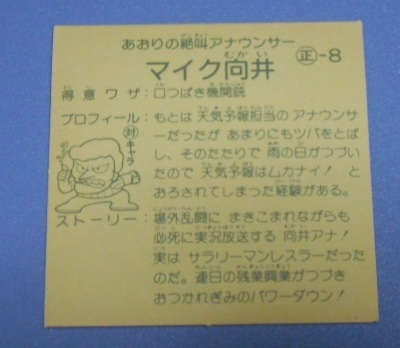 あおりの絶叫アナウンサー
マイク向井 正-8
得意ワザ:口つばき機関銃
プロフィール:もとは天気予報担当のアナウンサ
ーだったが あまりにもツバをとば
し、そのたたりで 雨の日がつづい
たので 天気予報はムカナイ!と
おろされてしまった経験がある。
対
キャラ
ストーリー:場外乱闘に まきこまれながらも
必死に実況放送する 向井アナ!
実は サラリーマンレスラーだった
のだ。連日の残業興業がつづき
おつかれぎみのパワーダウン!